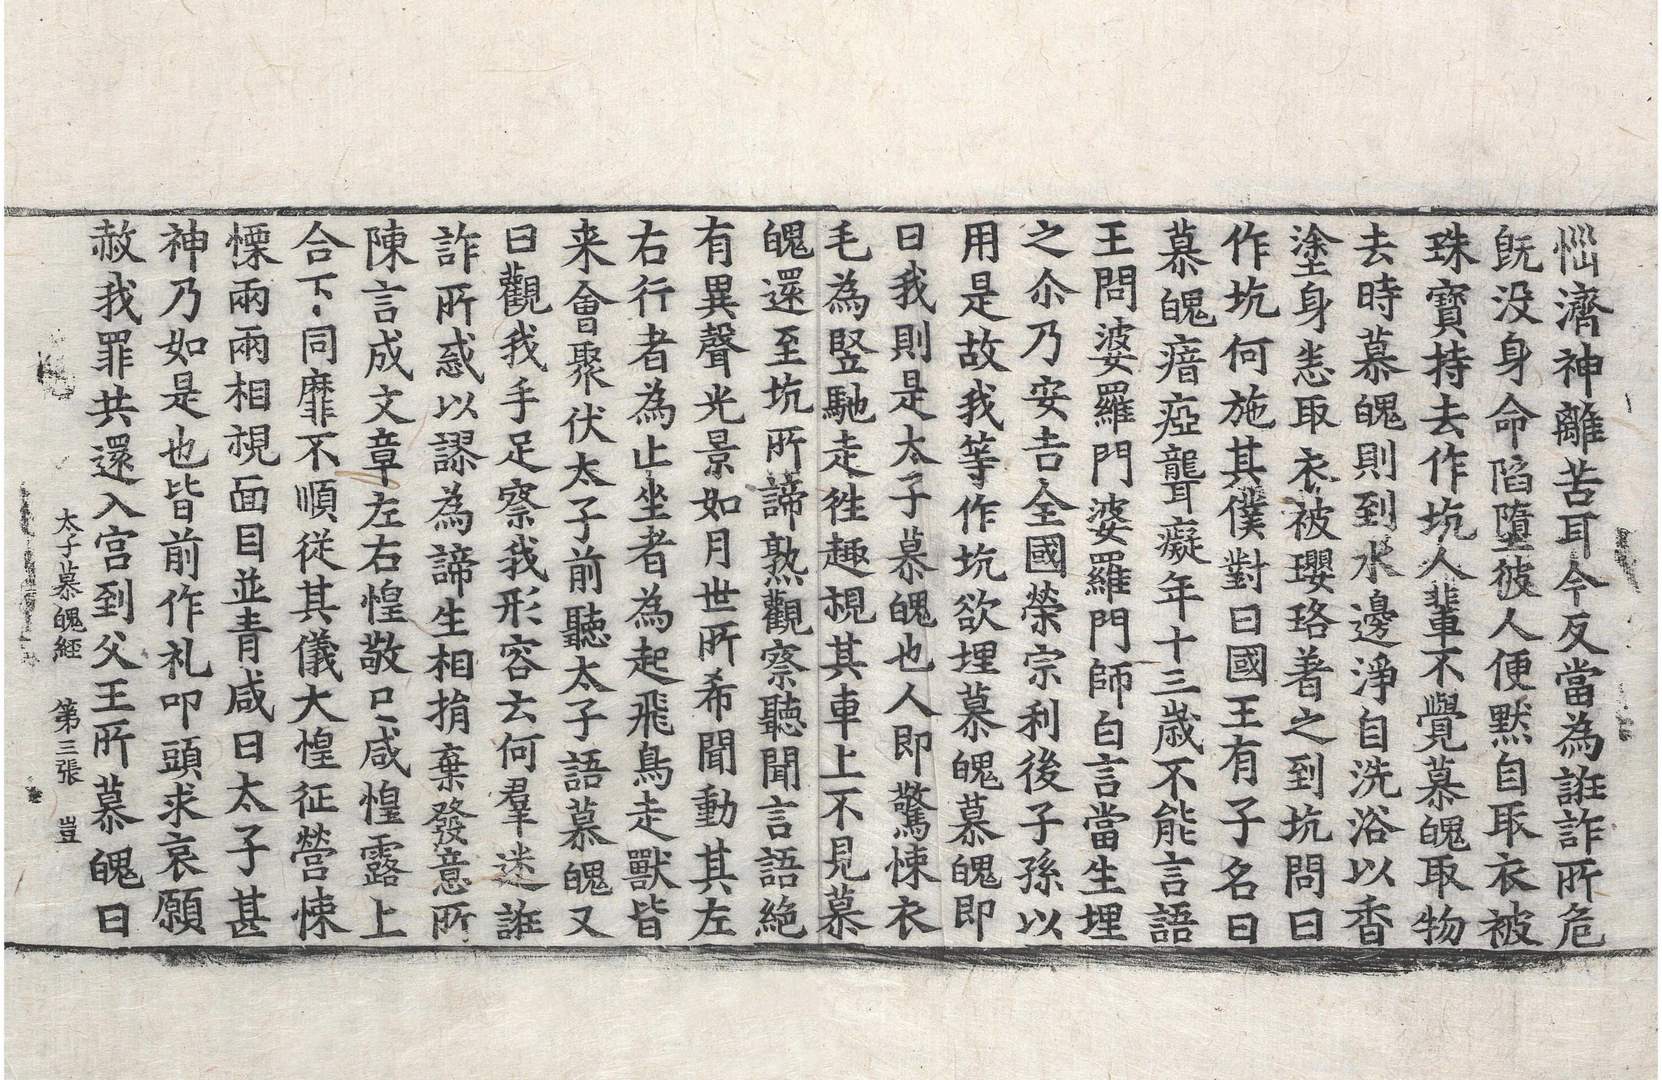 惱濟神離苦耳今反當為誑詐所危
既没身命陷墮彼人便默自取衣被
珠寶持去作坑人輩不覺慕魄取物
去時慕魄則到水邊淨自洗浴以香
塗身恙取衣被瓔珞著之到坑問曰
作坑何施其僕對曰國王有子名曰
慕魄瘖瘂聾癡年十三歲不能言語
王問婆羅門婆羅門師白言當生埋
之尒乃安吉全國榮宗利後子孫以
用是故我等作坑欲埋慕魄慕魄即
曰我則是太子慕魄也人即驚悚衣
毛為竪馳走徃趣視其車上不見慕
魄還至坑所諦熟觀察聽聞言語絶
有異聲光景如月世所希聞動其左
右行者為止坐者為起飛鳥走獸皆
来會聚伏太子前聽太子語慕魄又
曰觀我手足察我形容云何羣迷誑
詐所惑以謬為諦生相捐棄發意所
陳言成文章左右惶敬已咸惶露上
合下同靡不順従其儀大惶征營悚
慄兩兩相視面目並青咸曰太子甚
神乃如是也皆前作礼叩頭求哀願
赦我罪共還入宫到父王所慕魄曰
太子慕魄経 第三張 豈